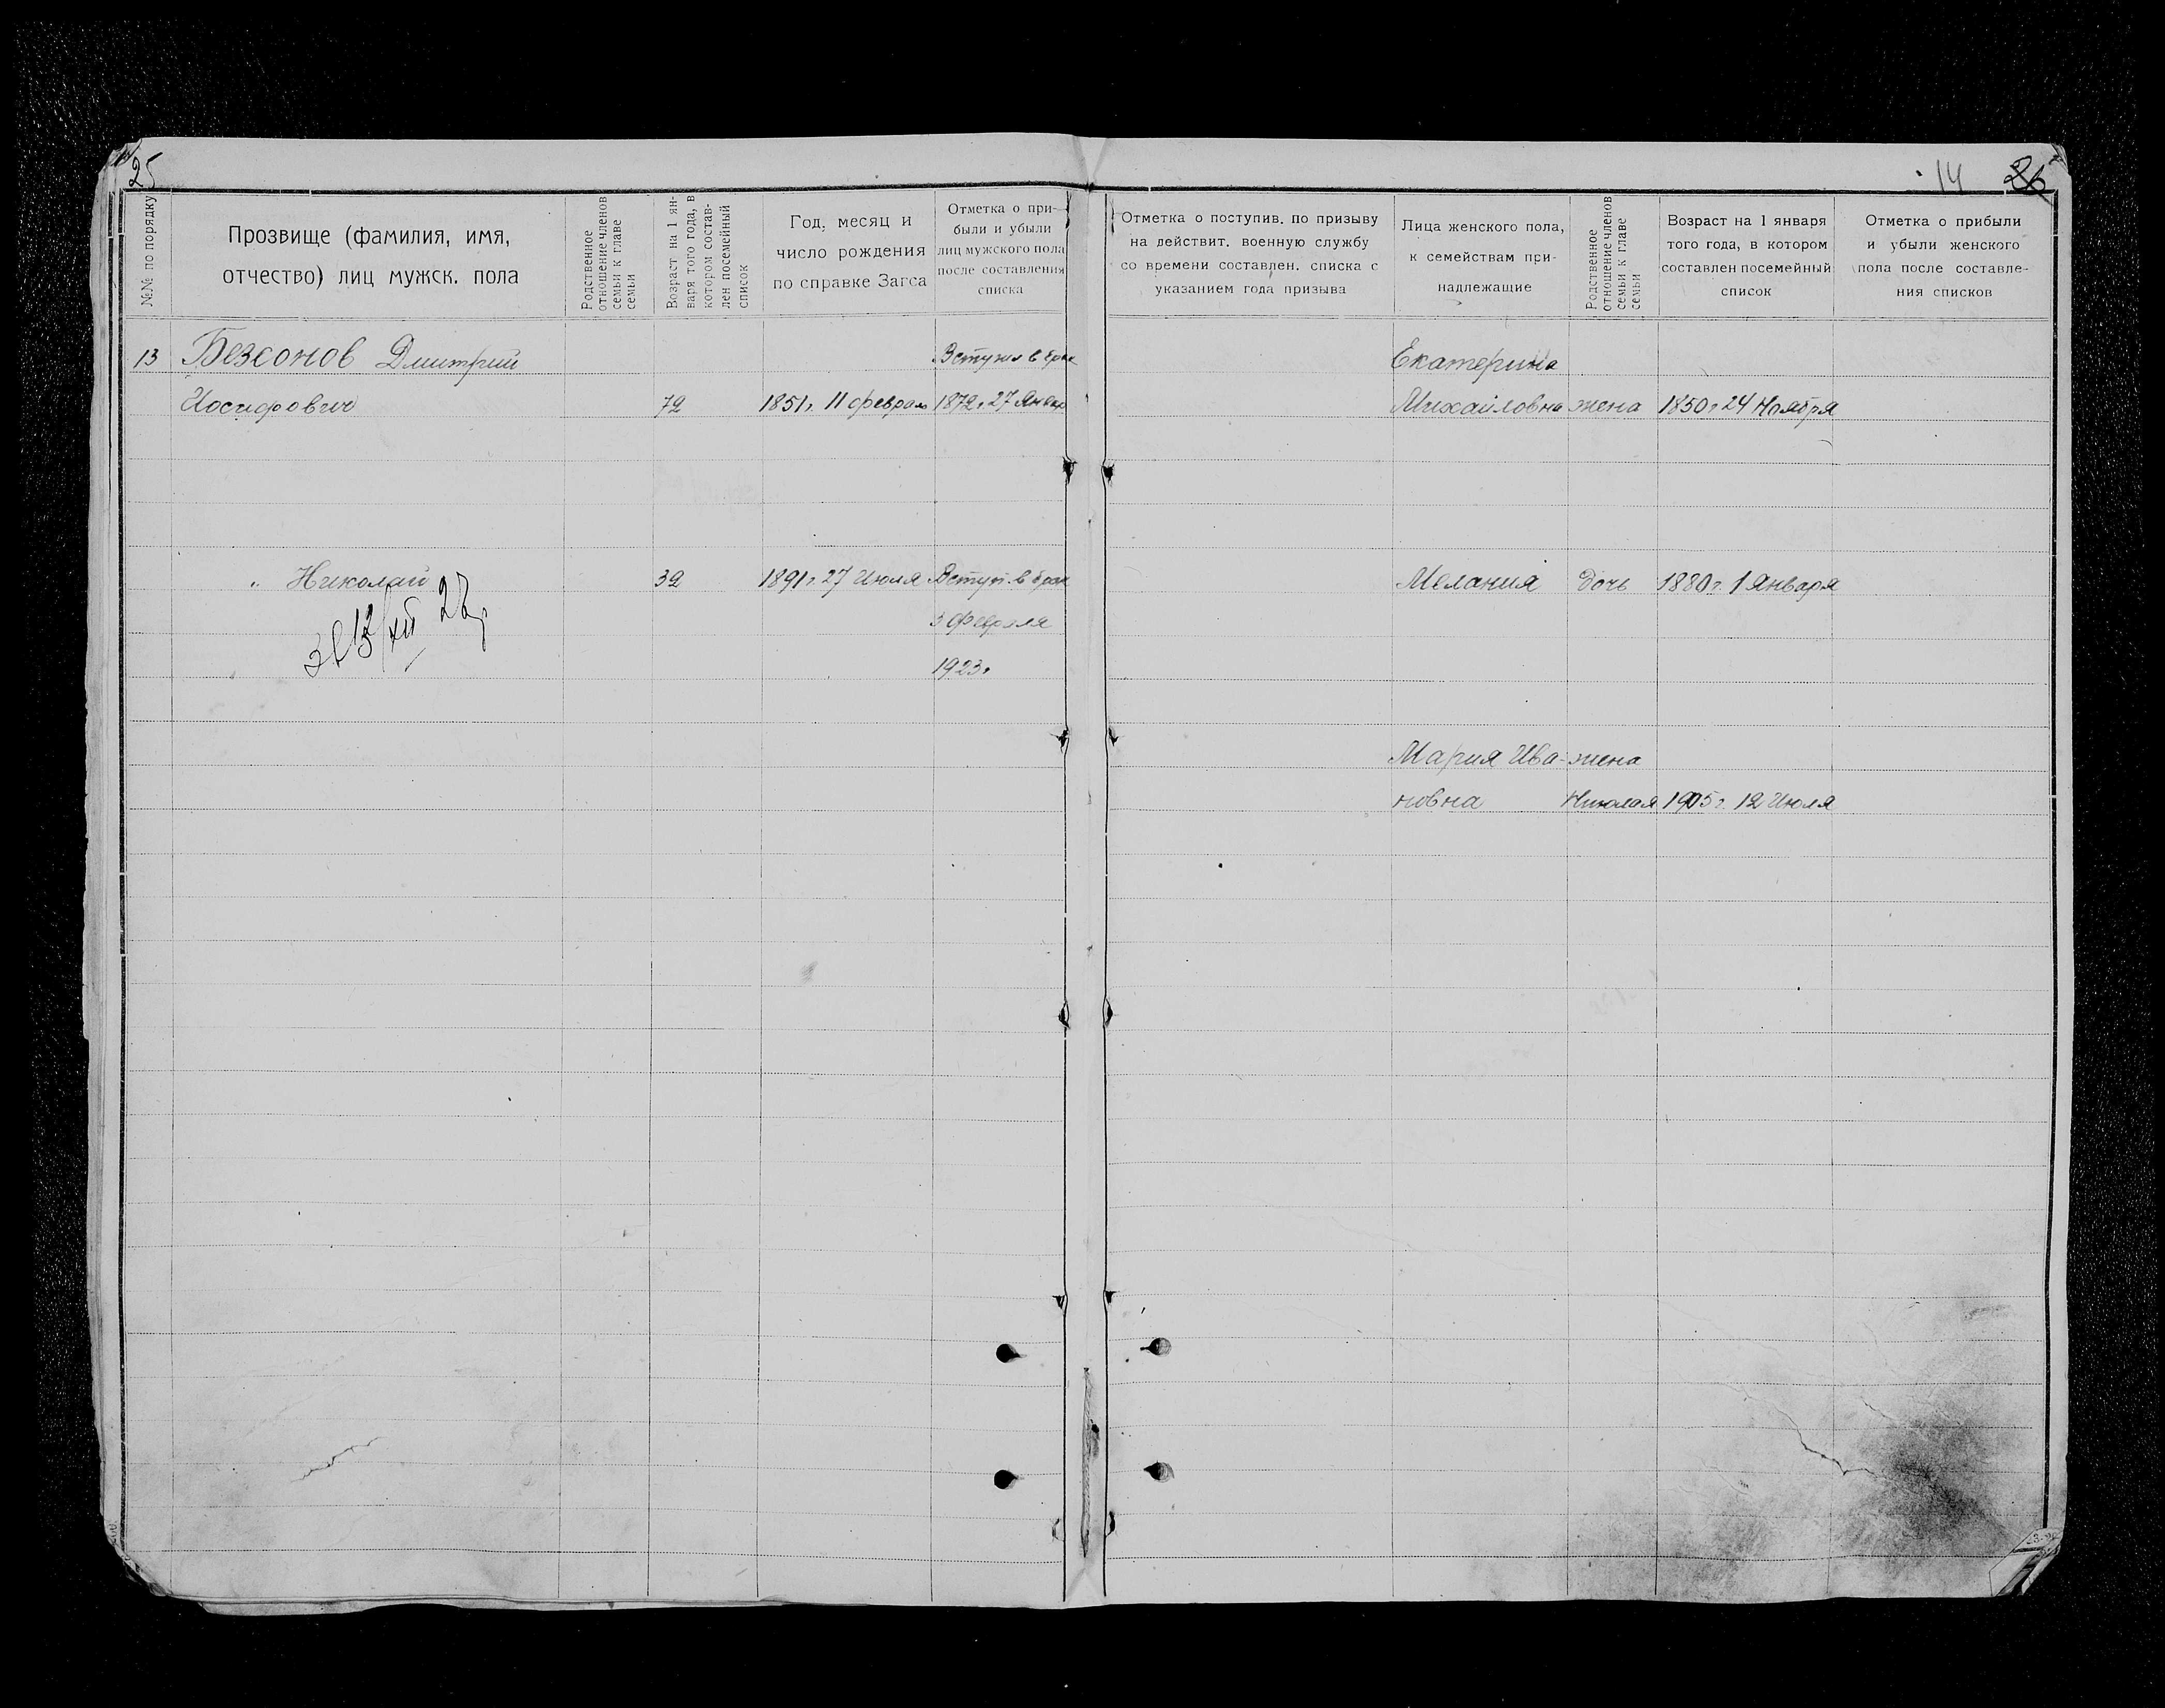 25
№№ по порядку
Прозвище (фамилия, имя,
отчество) лиц мужск. пола
Родственное
отношение членов
семьи к главе
семьи
Возраст на 1 ян-
варя того года, в
котором состав-
лен посемейный
список
Год, месяц и
число рождения
по справке Загса
Отметка о при-
были и убыли
лиц мужского пола
после составления
списка
13 Безсонов Дмитрий Вступил в брак
Иосифович 72 1851г. 11 февраля 1872г. 27 Январ
" Николай 32 1891г. 27 Июля Вступ. в брак
3 Февраля
1923г.
14 26
Отметка о поступив. по призыву
на действит. военную службу
со времени составлен. списка с
указанием года призыва
Лица женского пола,
к семействам при-
надлежащие
Родственное
отношение членов
семьи к главе
семьи
Возраст на 1 января
того года, в котором
составлен посемейный
список
Отметка о прибыли
и убыли женского
пола после составле-
ния списков
Екатерина
Михайловна жена 1850г 24 Ноября
Мелания дочь 1880г. 1 Января
Мария Ива- жена
новна Николая 1905г. 12 Июля